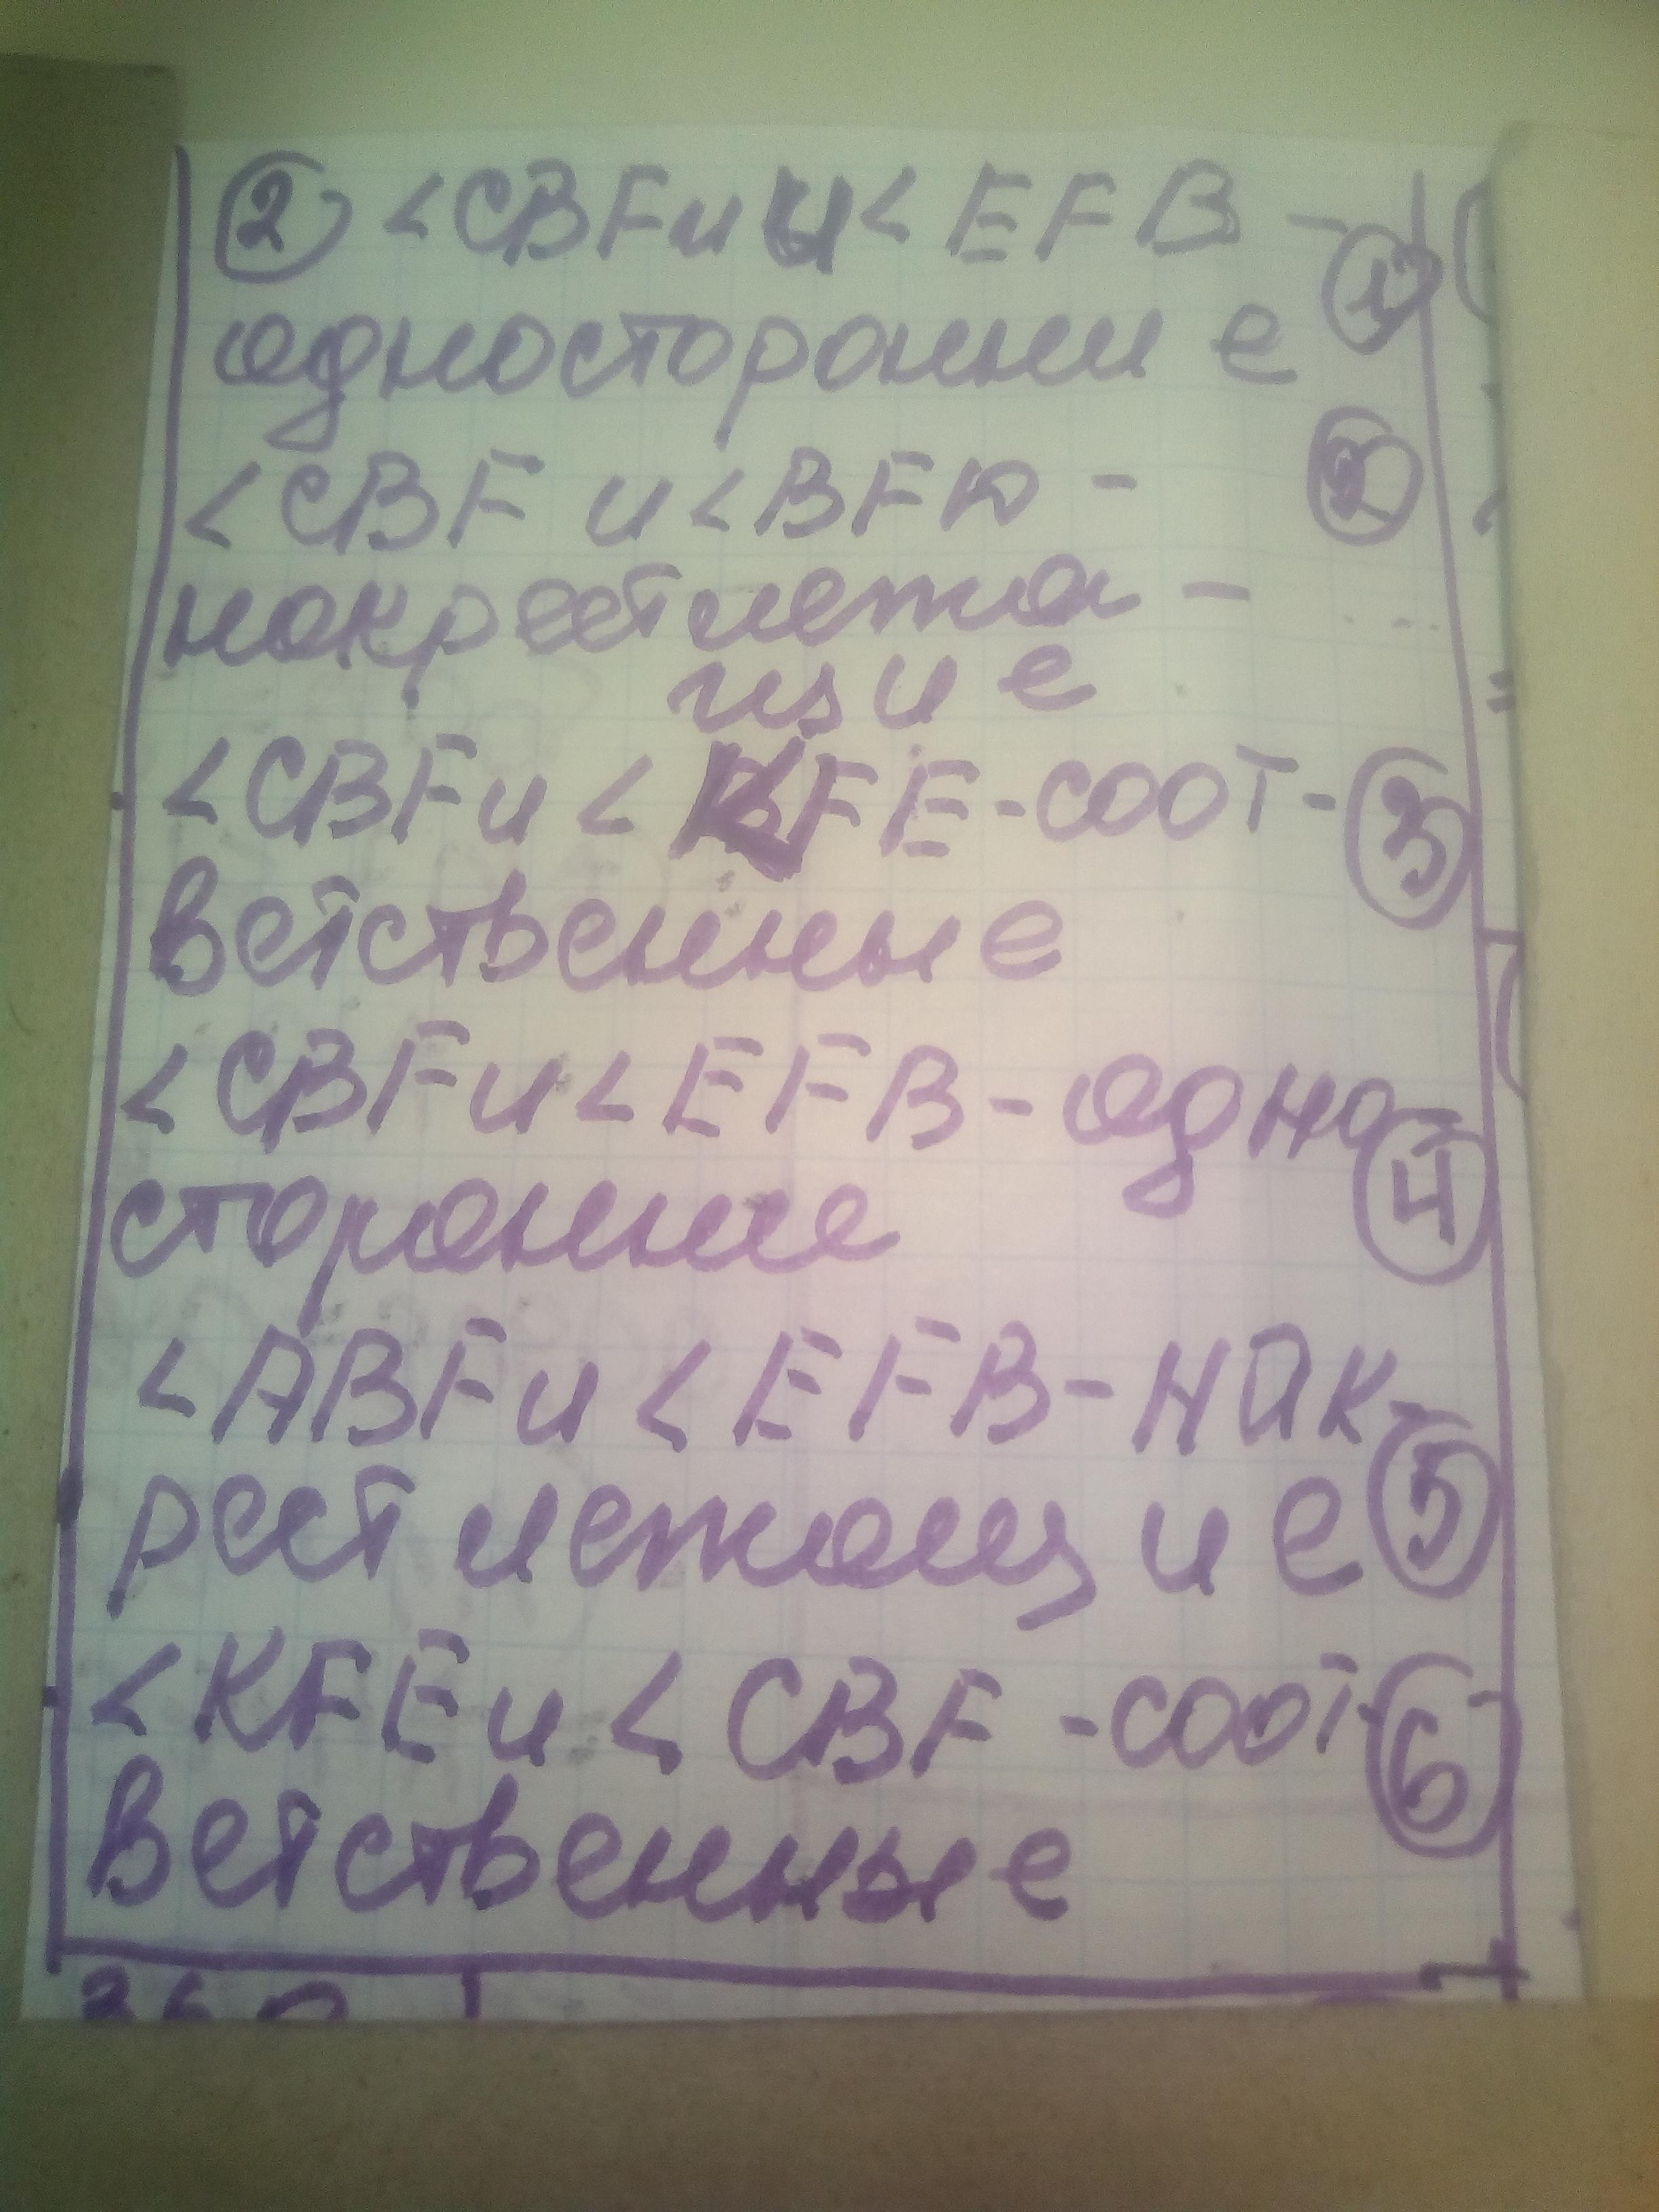 ② <CBF и и < EFB - ①
односторонние
<CBF и <BFD - ②
накрест лежа -
щие
<CBF и < KFE - соот- ③
ветственные
<CBF и < EFB - одно- ④
сторонние
<ABF и < EFB - нак- ⑤
рест лежащие
<KFE и < CBF - соот- ⑥
ветственные